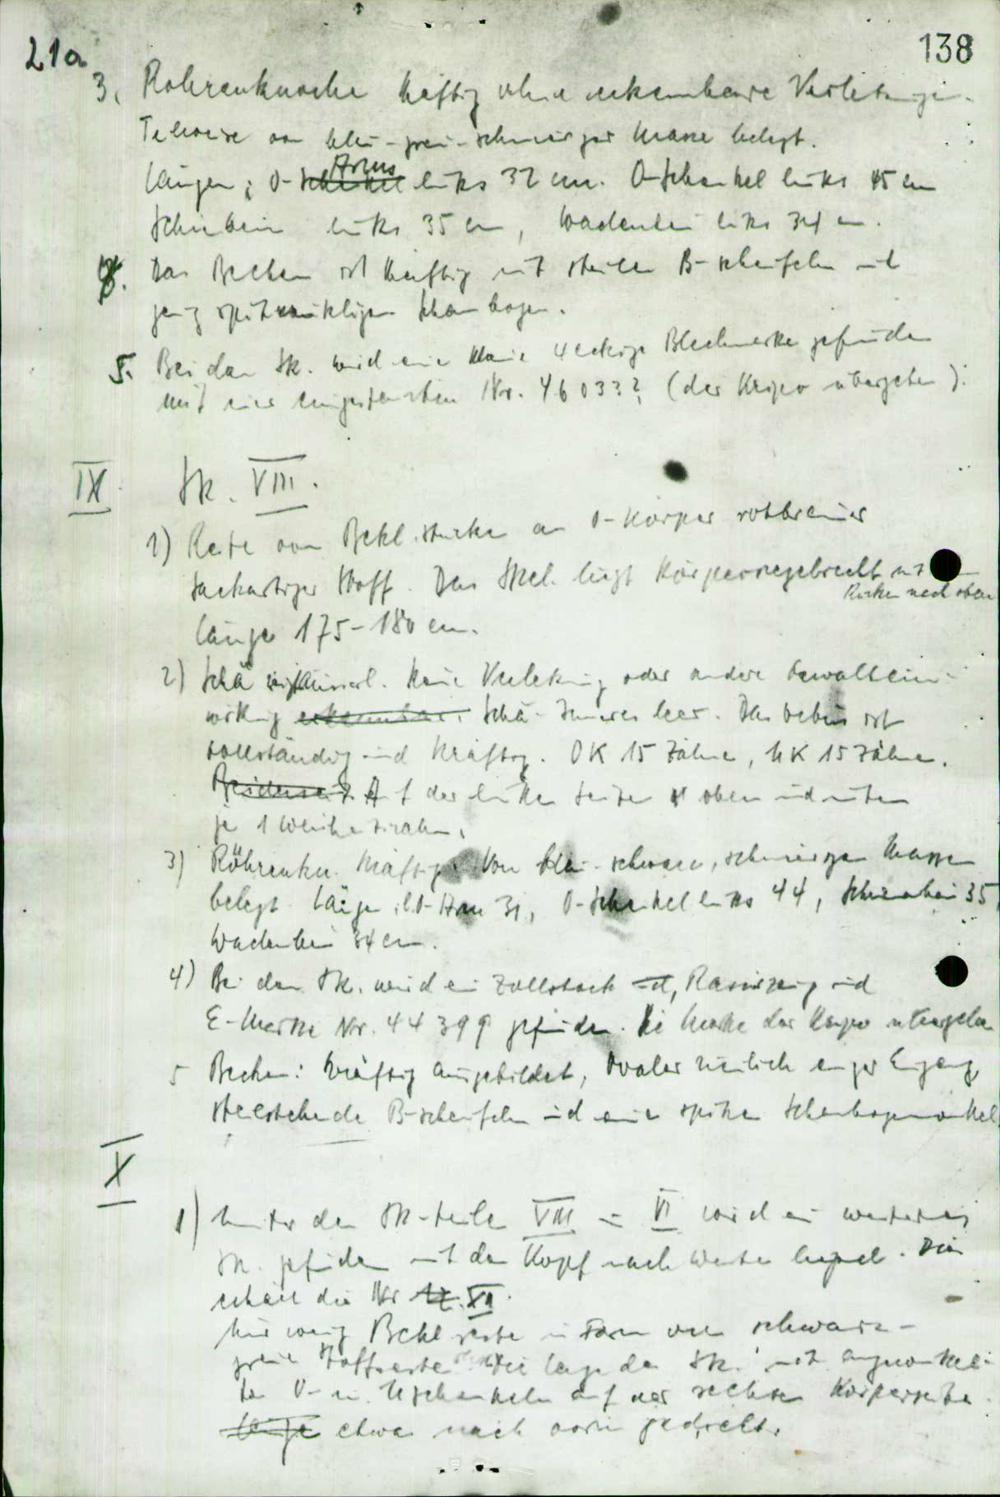 21a
138
3. Röhrenknochen kräftig ohne erkennbare Verletzungen.
Teilweise von blau-grau-schmieriger Masse belegt.
Längen: O-Arm links 32 cm. O-Schenkel links 45 cm
Schienbein links 35 cm, Wadenbein links 34 cm.
4. Das Becken ist kräftig mit steilen B-schaufeln und
ganz spitzwinkligen Schambogen.
5. Bei dem Sk. wird eine kleine 4eckige Blechmarke gefunden
mit einer eingestanzten Nr. 46033? (der Kripo übergeben).
IX Sk. VIII.
1) Reste von Bekl.stücken am O-Körper rotbrauner
sackartiger Stoff. Das Skel. liegt körpergerecht mit
Rücken nach oben
Länge 175-180 cm.
2) Schä. Keine Verletzung oder andere Gewaltein-
wirkung Schä-Inneres leer. Das Gebiss ist
vollständig und kräftig. OK 15 Zähne, UK 15 Zähne.
Auf der linken Seite oben und unten
je 1
3) Röhrenkn. kräftig. Von blau-schwarzer, schmieriger Masse
belegt. Länge: O-Arm 31, O-Schenkel links 44, Schienbein 35,
Wadenbein 34 cm.
4) Bei dem Sk. wird ein Zollstock, Rasierzeug und
E-Marke Nr. 44399 gefunden. Die Marke der Kripo übergeben
5 Becken: kräftig ausgebildet, ovaler ziemlich enger Eingang
steilstehende B-schaufeln und einen spitzen Schambogenwinkel
X
1) Unter den Sk-teilen VIII u VI wird ein weiteres
Sk. gefunden mit dem Kopf nach Westen liegend. Die
erhält die Nr XII.
Nur wenig Bekl reste in Form von schwarz-
grauen Stoffresten. Die Lage des Sk. mit angewinkel-
ten O- u. Uschenkeln auf der rechten Körperseite
etwas nach vorn gedreht.